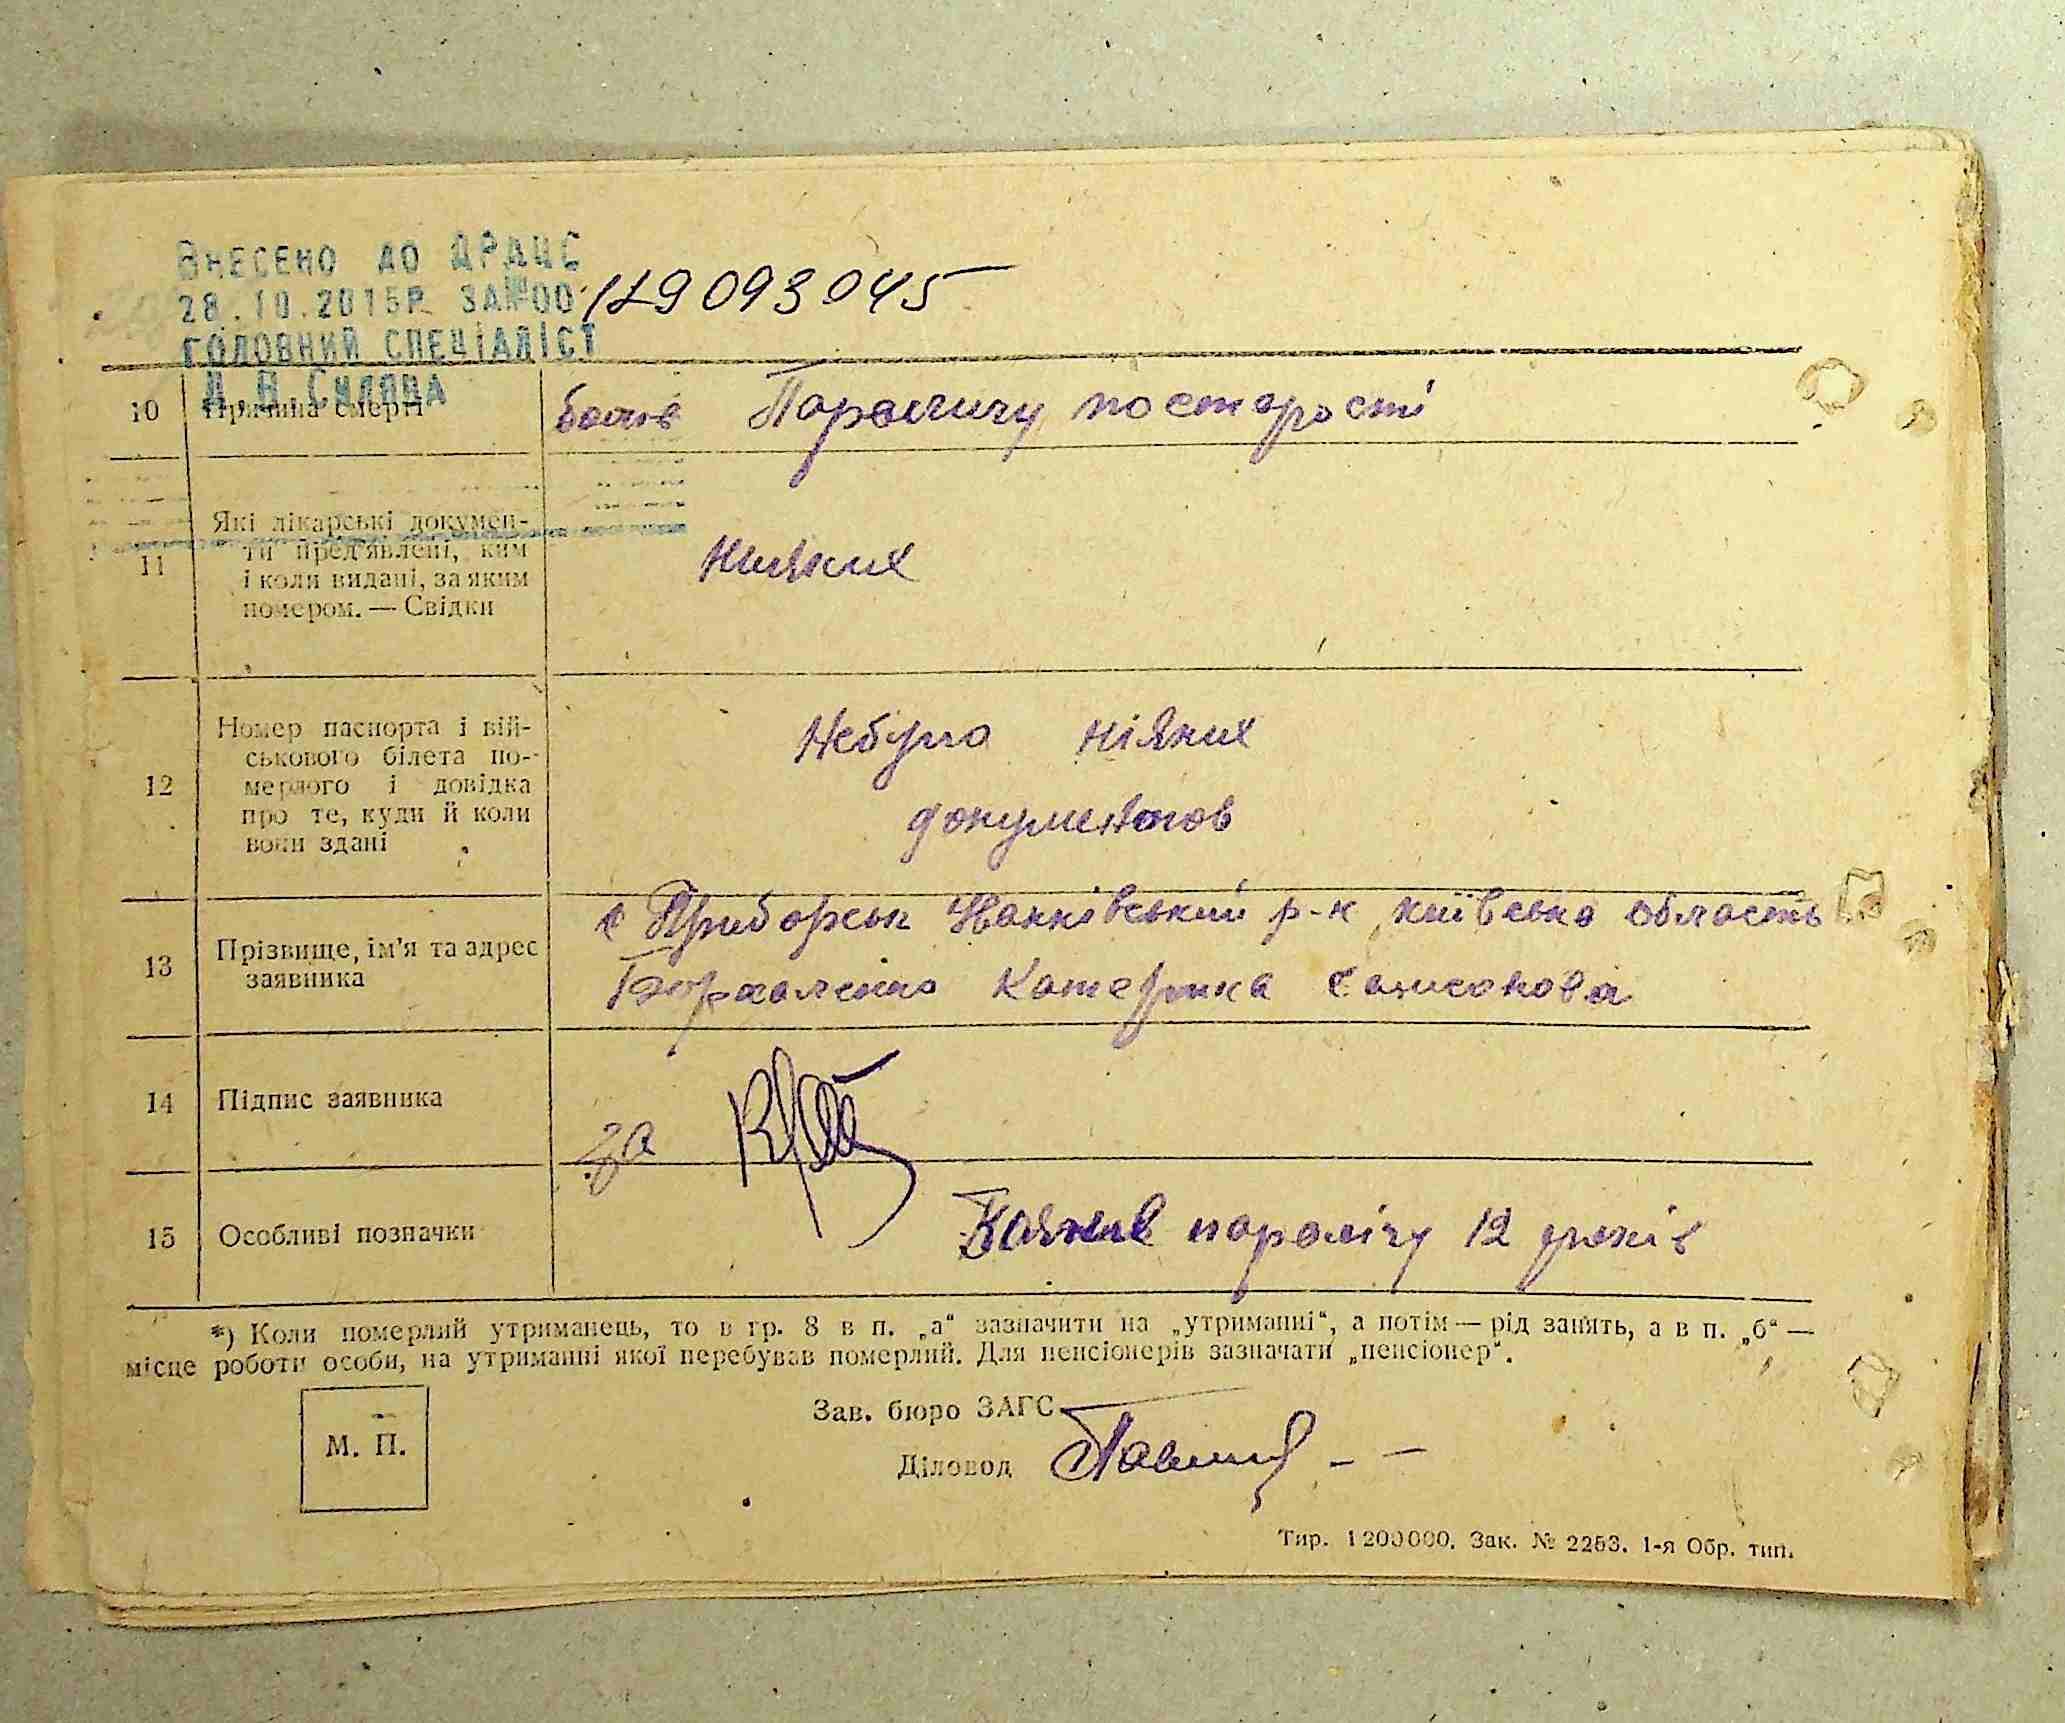 ВНЕСЕНО ДО ДРАЦС
28.10.2015Р. ЗА №00 129093045
ГОЛОВНИЙ СПЕЦІАЛІСТ
10 Причина смерті Паралічу по старості
11 Які лікарські докумен-
ти пред'явлені, ким
і коли видані, за яким
номером. — Свідки
Ніяких
12 Номер паспорта і вій-
ськового білета по-
мерлого і довідка
про те, куди й коли
вони здані
Небуло ніяких
документов
13 Прізвище, ім'я та адрес
заявника
с Приборськ Іванківський р-н київська область
Катерина
14 Підпис заявника за
15 Особливі позначки паралічу 12 років
*) Коли померлий утриманець, то в гр. 8 в п. „а" зазначити на „утриманні", а потім — рід занять, а в п. „б" —
місце роботи особи, на утриманні якої перебував померлий. Для пенсіонерів зазначати „пенсіонер".
М. П.
Зав. бюро ЗАГС
Діловод
Тир. 1200000. Зак. № 2253. 1-я Обр. тип.